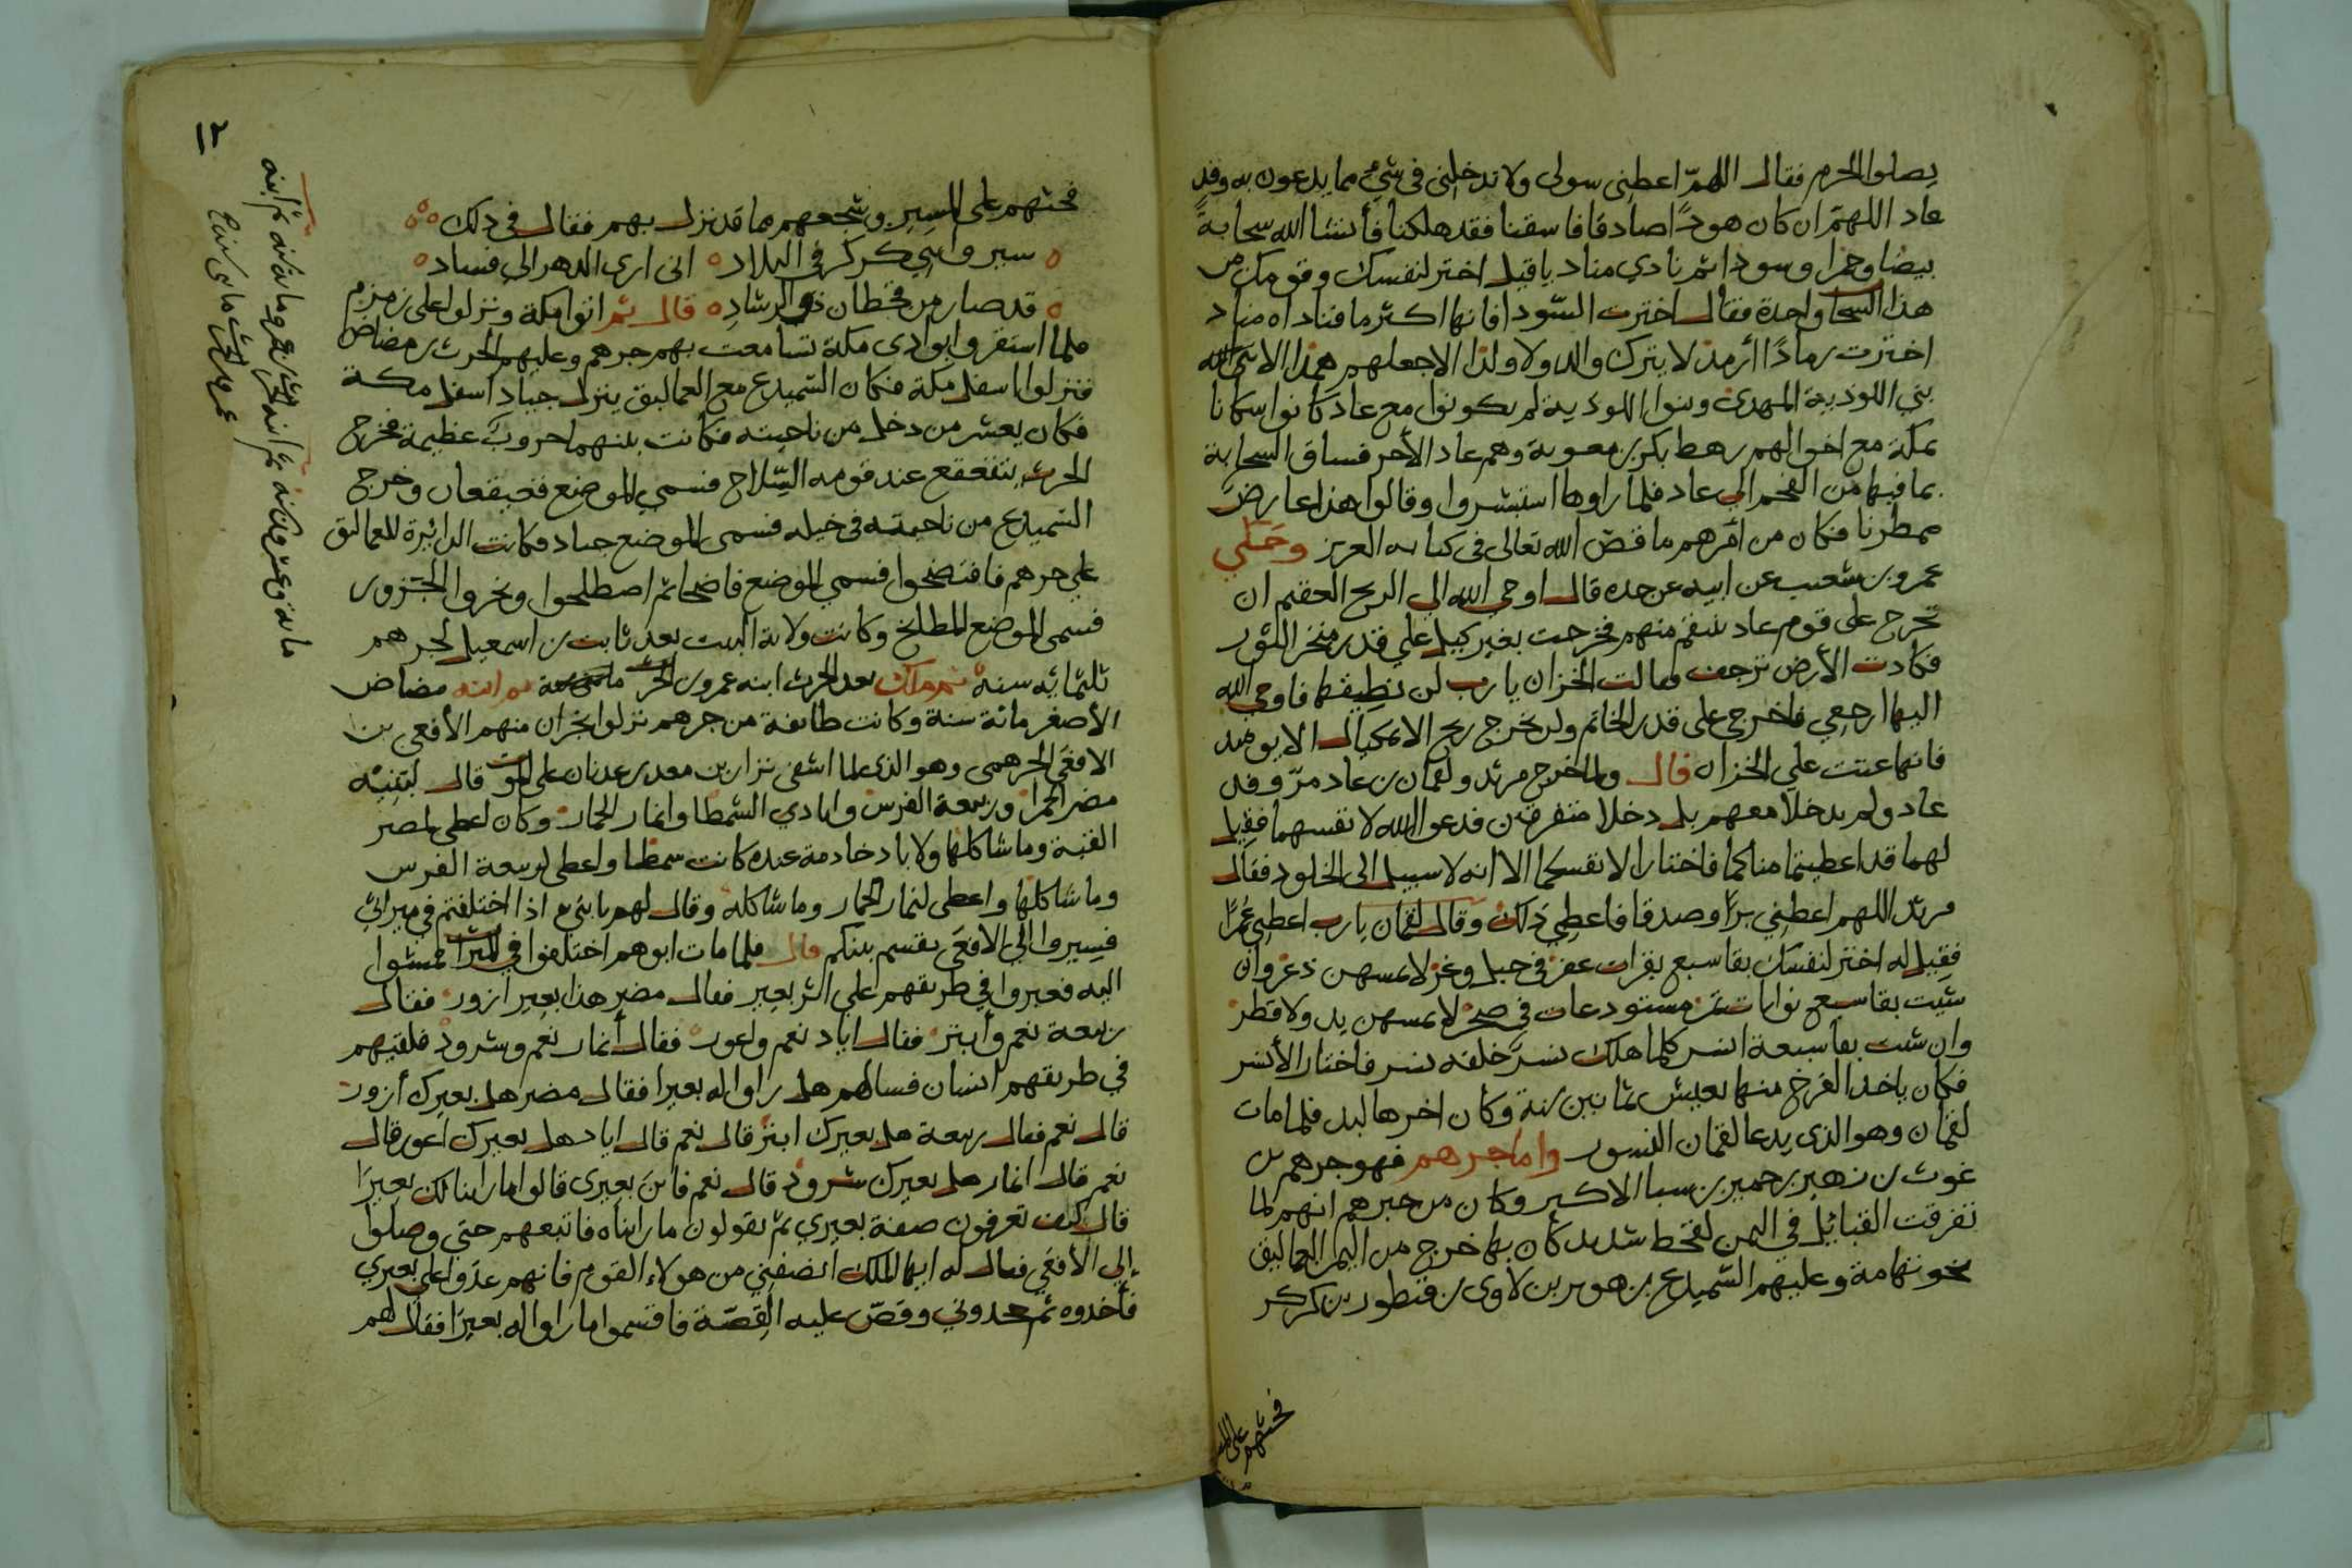 يصلوا الحرم فقال اللهمّ اعطني سولى ولا تدخلنى فى شيءٍ مما يدعون به وفد
عاد اللهمّ ان كان هودًا صادقا فاسقنا فقد هلكنا فأنشا الله سحابةً
بيضا وحمرا وسودا ثم نادي مناد ياقيل اختر لنفسك وقومك من
هذا السحا واحدة فقال اخترت السّودا فانها اكثر ما فناداه مناد
اخترت رمادًا أرمد لا يترك والد ولا ولدا الا جعلهم همدا الا بنى الله
بني اللوذية المهدى وبنوا اللوذية لم يكونوا مع عاد كانوا سكانا
بمكة مع اخوالهم رهط بكر بن معوية وهم عاد الأخر فساق السحابة
بما فيها من النخم الى عاد فلما راوها استبشروا وقالوا هذا عارض
ممطرنا فكان من امرهم ما قصّ الله تعالى فى كتابه العزيز وحَكي
عمرو بن شعيب عن ابيه عن جده قال اوحي الله الي الريح العقيم ان
تخرج على قوم عاد تنتقم منهم فخرجت بغير كيل علي قدر منخر الثور
فكادت الأرض ترجف وقالت الخزان يا رب لن نطيقها فاوحي الله
اليها ارجعي فاخرجي على قدر الخاتم ولن يخرج ريح الا بمكيال الا يوميد
فانها عتت على الخزان قال ولما خرج مرثد ولقمان بن عاد مرّ وفد
عاد ولم يدخلا معهم بل دخلا متفرقين فدعوا الله لانفسهما فقيل
لهما قد اعطيتما مناكما فاختارا لانفسكما الا انه لا سبيل الى الخلود فقال
مرثد اللهم اعطني برّا وصدقا فاعطي ذلك وقال لقمان يا رب اعطني عمرًا
فقيل له اختر لنفسك بقا سبع بقرات عفر في جبل وعر لا يمسهن ذعر وان
شيت بقا سبع نوايات تمر مستودعات في صخر لا يمسهن يد ولا قطر
وان شيت بقا سبعة انسر كلما هلك نسر خلفه نسر فاختار الأنسر
فكان ياخذ الفرخ منها يعيش ثمانين سنة وكان اخرها لبد فلما مات
لقمان وهو الذى يدعا لقمان النسور واما جرهم فهو جرهم بن
غوث بن زهير بن حمير بن سبا الاكبر وكان من خبرهم انهم لما
تفرقت القبائل في اليمن لقحط شديد كان بها خرج من اليمن العماليق
نحو تهامة وعليهم السّميدع بن هوبر بن لاوى بن قنطور بن كركر
فحثهم على المسير
١٢
فحثهم على المسير وشجعهم مما قد نزل بهم فقال فى ذلك
سيروا بني كركر في البلاد انى ارى الدهر الي فساد
قد صار من قحطان ذو الرشادِ قال ثم اتوا مكة ونزلوا على زمزم
فلما استقروا بوادى مكة تسامعت بهم جرهم وعليهم الحرث بن مضاض
فنزلوا اسفل مكة فكان السّميدع مع العماليق ينزل جياد اسفل مكة
فكان يعشر من دخل من ناحيته فكانت بينهما حروبٌ عظيمة فخرج
الحرث يتقعقع عند قومه السّلاح فسمي الموضع قعيقعان وخرج
السّميدع من ناحيته فى خيله فسمى الموضع جياد فكانت الدائرة للعماليق
علي جرهم فافتضحوا فسمي الموضع فاضحا ثم اصطلحوا ونحروا الجزور
فسمى الموضع المطابخ وكانت ولاية البيت بعد ثابت بن اسمعيل لجرهم
ثلثمائه سنة ثم ملك بعد الحرث ابنه عمرو بن الحرث ثم ابنه مضاض
الأصغر مائة سنة وكانت طايفة من جرهم نزلوا نجران منهم الأفعى بن
الافعَى الجرهمى وهو الذى لما اشفى نزار بن معد بن عدنان على الموت قال لبنيه
مضر الحمرا وربيعة الفرس وايادي الشمطا وانمار الحمار وكان اعطى لمضر
القبة وما شاكلها ولاياد خادمة عنده كانت شمطا واعطى لربيعة الفرس
وما شاكلها واعطى لنمار الحمار وما شاكله وقال لهم يا بني اذا اختلفتم في ميراثي
فسيروا الي الافعَى يقسم بينكم قال فلما مات ابوهم اختلفوا في الميراث فمشوا
اليه فعبروا في طريقهم على اثر بعير فقال مضر هذا بعير ازور فقال
ربيعة نعم وأبتر فقال اياد نعم واعور فقال أنمار نعم وشرود فلقيهم
في طريقهم انسان فسالهم هل راوا له بعيرا فقال مضر هل بعيرك أزور
قال نعم فقال ربيعة هل بعيرك ابتر قال نعم قال اياد هل بعيرك اعور قال
نعم قال انمار هل بعيرك شرود قال نعم فاين بعيرى قالوا ما راينا لك بعيرًا
قال كيف تعرفون صفة بعيري ثم يقولون ما رايناه فاتبعهم حتي وصلوا
إلي الأفعَي فقال له ايها الملك انصفني من هولاء القوم فانهم عدَوا علي بعيري
فأخذوه ثم جحدوني وقصّ عليه القصّة فاقسموا ما راوا له بعيرًا فقال لهم